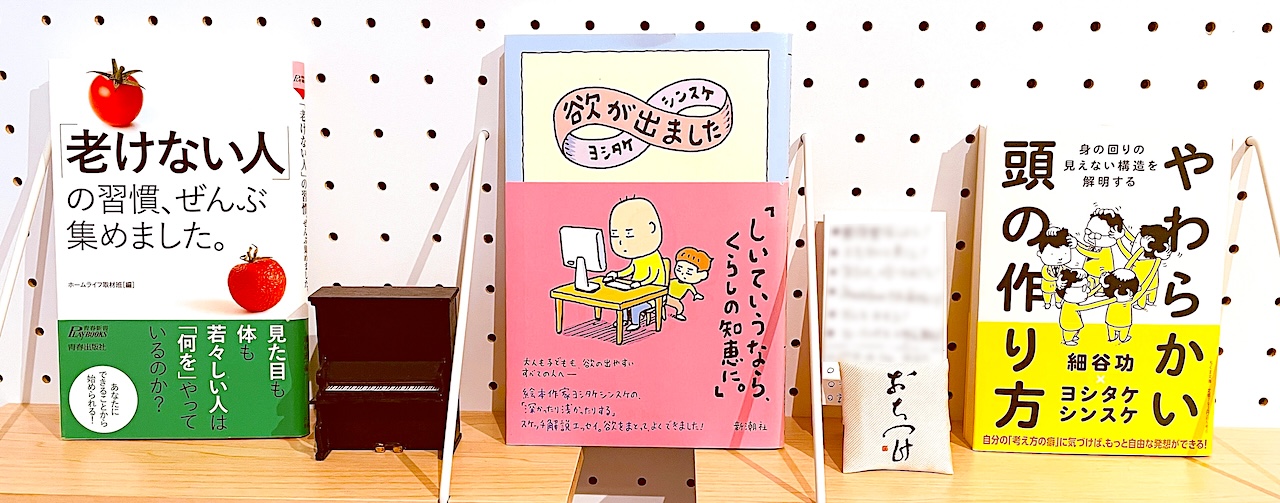 「老けない人」
の習慣、ぜんぶ
集めました。
ホームライフ取材班[編]
青春新書
PLAYBOOKS
青春出版社
見た目も
体も
若々しい人は
「何を」やって
いるのか?
あなたに
できることから
始められる!
欲が出ました
ヨシタケ
シンスケ
「しいていうなら、
くらしの知恵に。」
大人も子どもも、欲の出やすい
すべての人へ――
絵本作家ヨシタケシンスケの、
「深かったり浅かったりする」
スケッチ解説エッセイ。欲をまとって、よくできました!
新潮社
おちつけ
やわらかい
頭の作り方
身の回りの
見えない構造を
解明する
細谷功
×
ヨシタケ
シンスケ
自分の「考え方の癖」に気づけば、もっと自由な発想ができる!